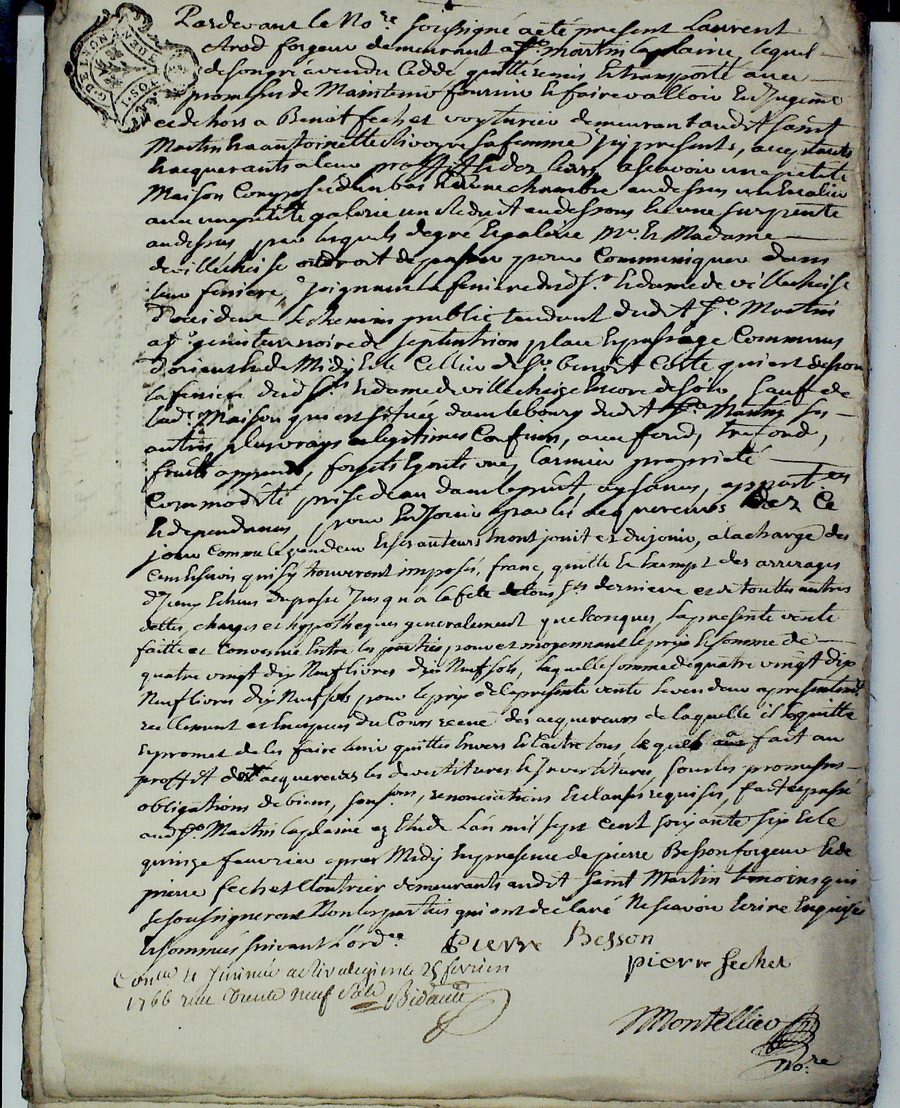 Pardevant le No.re soussigné a été present Laurent
Arod forgeur demeurant a St. Martin la plaine, lequel
de son gré a vendu Ceddé quitté remis et transporté avec
promesses de Maintenir fournir et faire valloir En Jugemt.
et dehors a Benoit fechet voyturier demeurant audit Saint
Martin Et a antoinette sa femme Icy presents, acceptants
et acquerants a leur proffit et des leurs, ascavoir une petite
Maison Composée d'un bas et d'une chambre au dessus un Escalier
avec une petite galerie un Reduit au dessous et une surpente
au dessus par lesquels degré Et galerie Mr. et Madame
devillecheise ont droit de passer pour Communiquer dans
leur feniere, Joignant la feniere dud. Sr. et dame de villecheise
d'occident le chemin public tendant dudit St. Martin
a St. genis terre noire de septentrion place Et passage Communs
d'orient et de Midy Et le Cellier de Sr. benoit Coste qui est dessou
la feniere dud. Sr. et dame de villecheise Encore de soir sauf de
lad. Maison qui est située dans le bourg dudit St. Martin ses
autres plus vrays et legitimes Confins, avec fond, trefond,
fruits apprends, forgets Egouts vues, larmier proprieté
Commodité prise d'eau dans le puit aysances, appart.ces
et dependances, pour En Jouir par les acquereurs dez Ce
jour Comme le vendeur Et ses auteurs En ont jouit et du jouir, a la charge des
Cens et servis qui s'y trouveront imposés, franc, quitte Et Exempt des arrerages
d'Iceux Echus du passé Jusqu'a la fete de tous Sts derniere et de touttes autres
dettes, charges et hypotheques generalement quelconques, la presente vente
faitte et Convenue Entre les parties pour et moyennant le prix Et somme de
quatre vingt dix Neuf livres dix Neuf sols, laquelle somme de quatre vingt dix
Neuf livres dix Neuf sols pour le prix de la presente vente le vendeur a presentemt.
reellement et En Especes du Cours receue des acquereurs de laquelle il les quitte
Et promet de les faire tenir quittes Envers Et Contre tous lequel a fait au
proffit des acquereurs les devestitures et Investitures, sous les promesses
obligations de biens, soumons, renonciations Et clauses requises, fait et passé
aud. St. Martin la plaine ez Etude L'an mil sept Cent soixante six Et le
quinze fevrier apres Midy En presence de pierre Besson forgeur Et de
pierre fechet Cloutrier demeurants audit Saint Martin temoins qui
se soussigneront Non les parties qui ont declaré Ne scavoir Ecrire Enquise
Et sommés suivant L'ord.ce
Pierre Besson
pierre fechet
Con.le a st. le 25 fevrier
1766 reçu trente neuf sols
Montellier
No.re